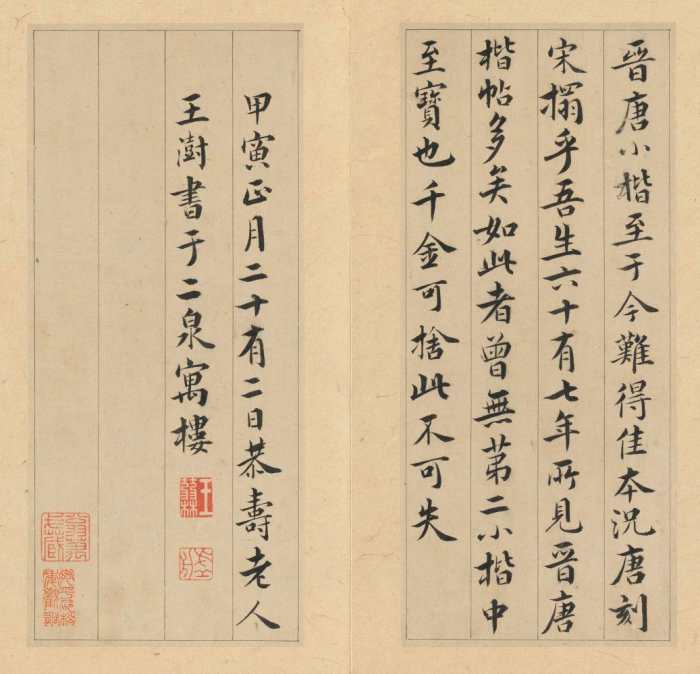 晉唐小楷至于今難得佳本况唐刻
宋搨乎吾生六十有七年所見晉唐
楷帖多矣如此者曾無苐二小楷中
至寶也千金可捨此不可失
甲寅正月二十有二日恭壽老人
王澍書于二泉寓樓